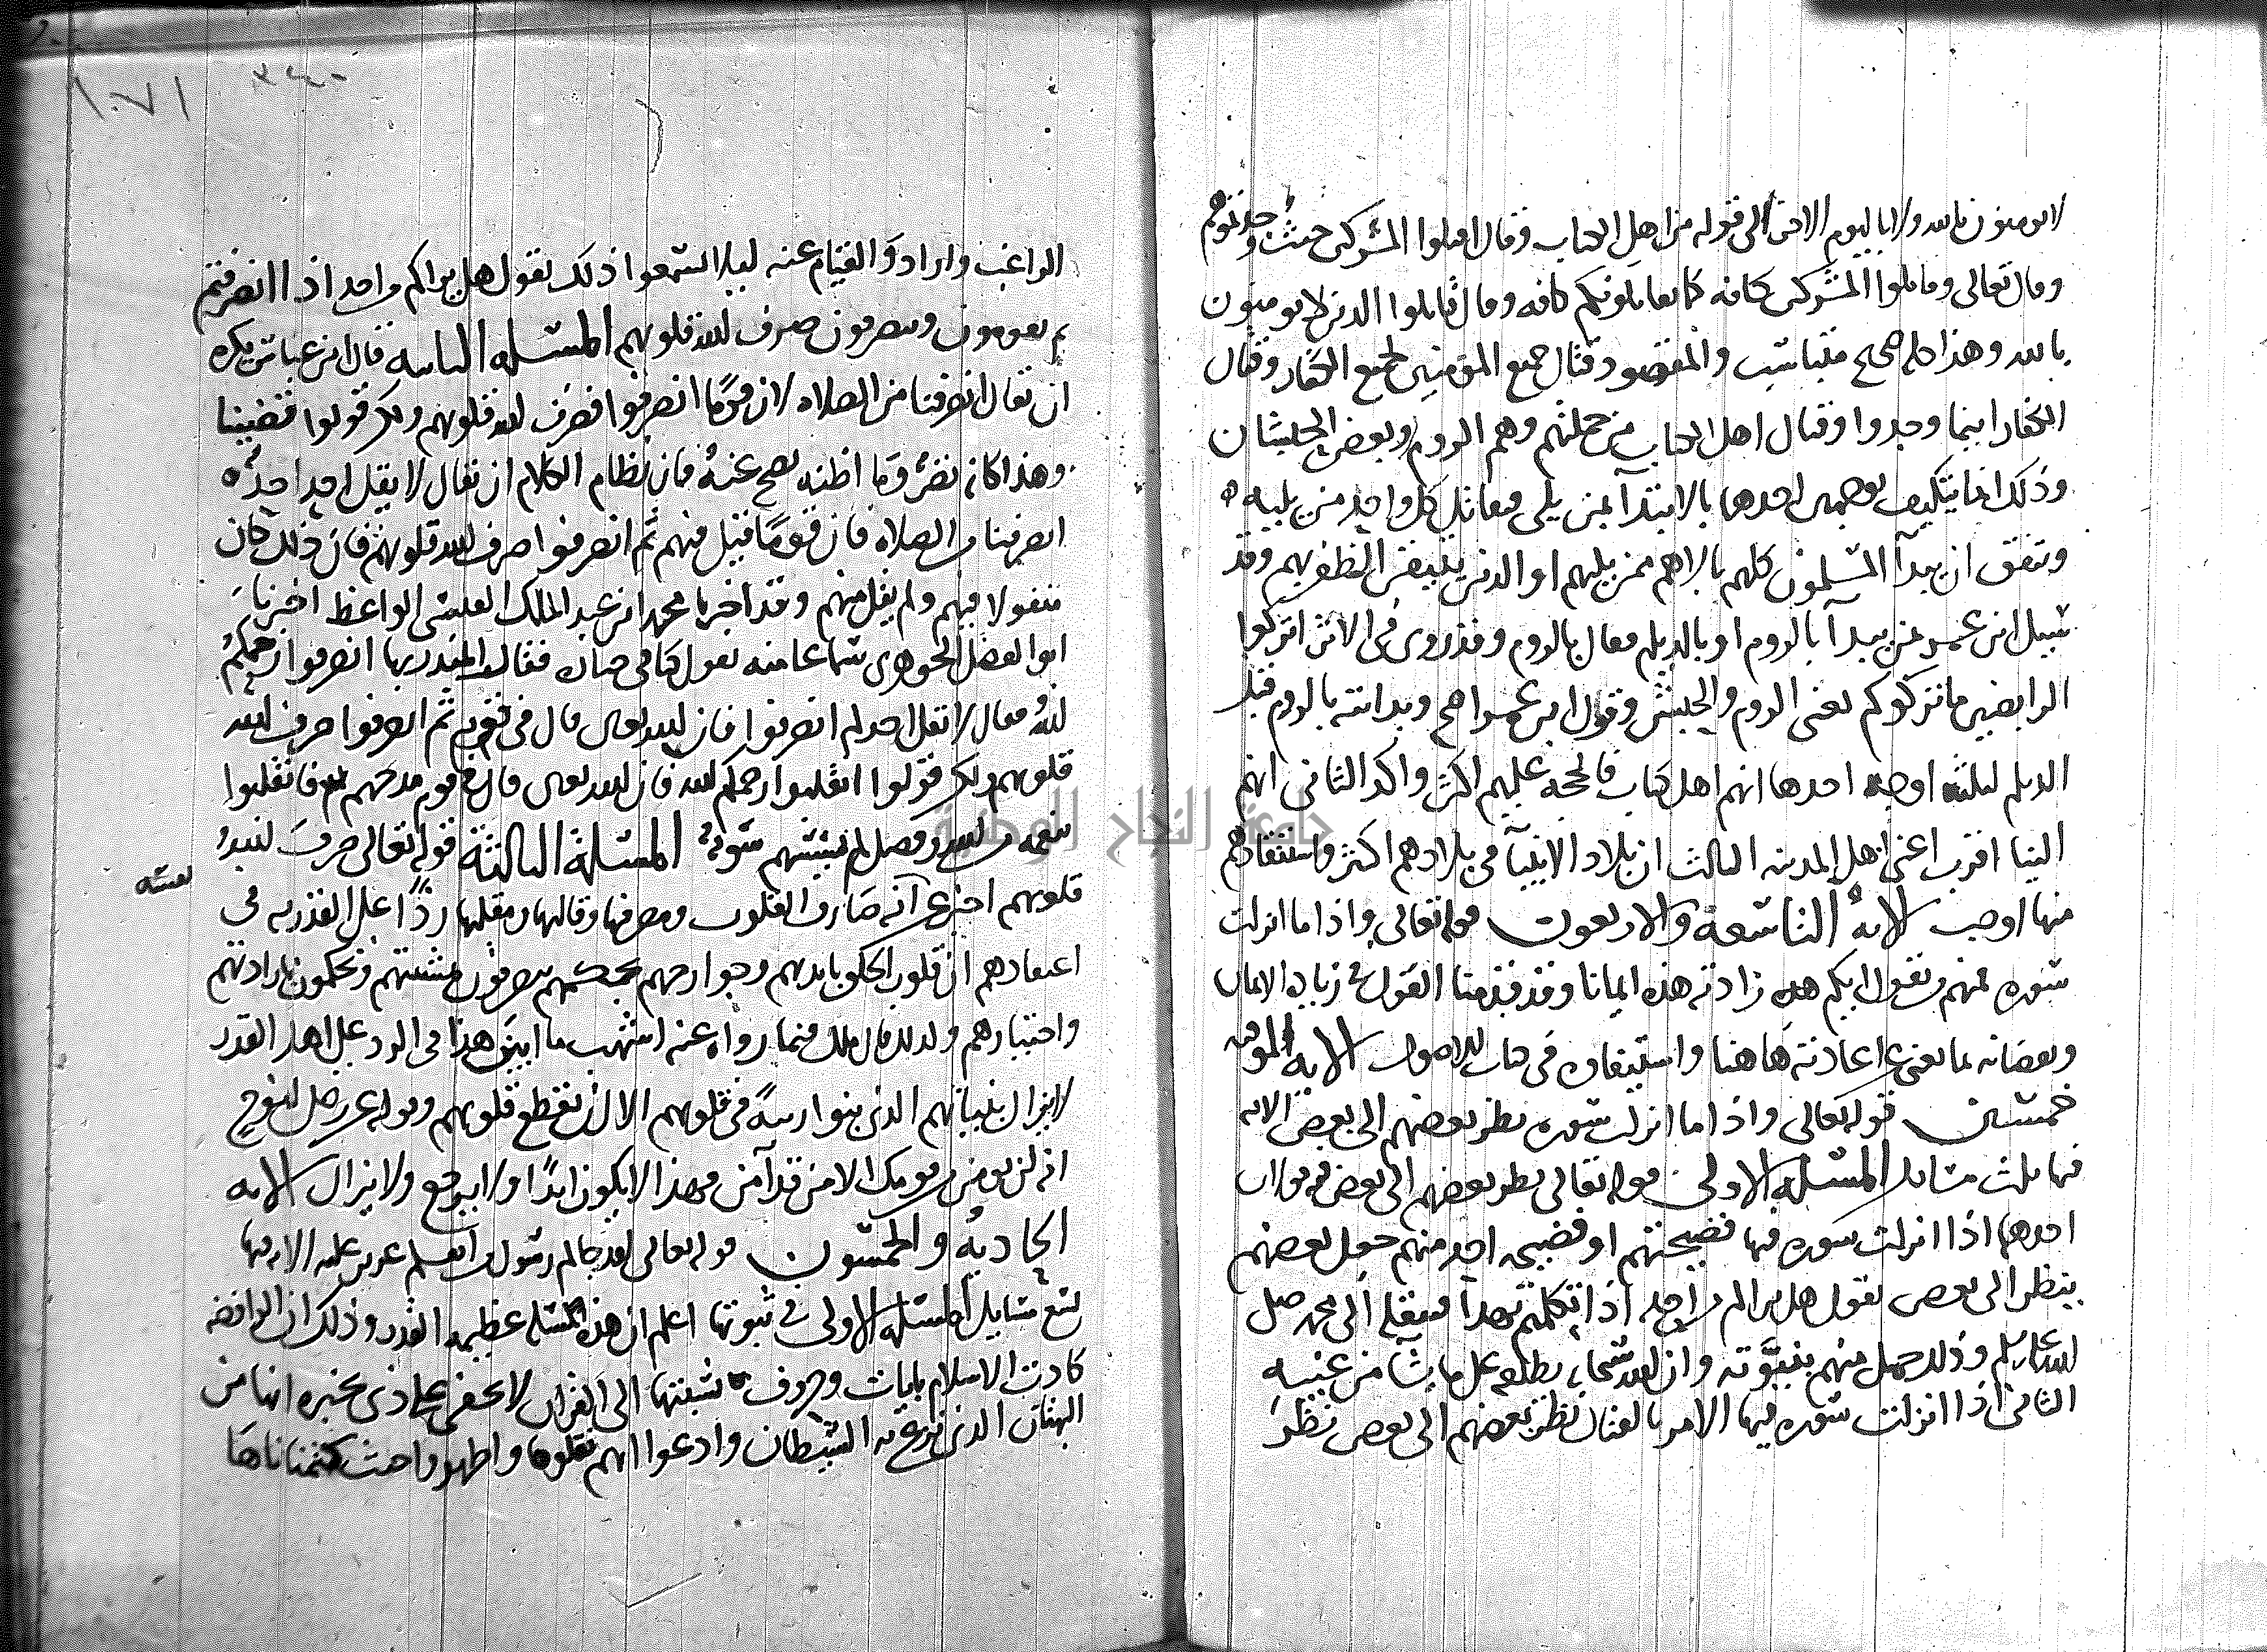 لا يومنون بالله ولا باليوم الاخر الى قوله من اهل الكتاب وقال اقتلوا المشركين حيث وجدتموهم
وقال تعالى وقاتلوا المشركين كافه كما يقاتلونكم كافه وقال قاتلوا الذين لا يومنون
بالله وهذا كله صحيح متناسب والمقصود قتال جميع المومنين لجميع الكفار وقتال
الكفار اينما وجدوا وقتال اهل الكتاب من جملتهم وهم الروم وبعض الحبشان
وذلك انما يتكيف لوجهين احدهما بالابتدا بمن يلي فيقاتل كل واحد من يليه
ويتفق ان يبدا المسلمون كلهم بالاهم ممن يليهم او الذين يتيقن الظفر بهم وقد
سيل ابن عمر بمن يبدا بالروم او بالديلم فقال بالروم وقد روى في الاثر اتركوا
الرابضين ما تركوكم يعنى الروم والحبش وقول ابن عمر اصح وبداءته بالروم قبل
الديلم لثلثه اوجه احدها انهم اهل كتاب فالحجه عليهم اكثر واكد الثاني انهم
الينا اقرب اعنى اهل المدينه الثالث ان بلاد الانبيا في بلادهم اكثر واستنقاذهم
منها اوجب الايه التاسعة والاربعون قوله تعالى واذا ما انزلت
سوره فمنهم من يقول ايكم زادته هذه ايمانا وقد قدمنا القول في زياده الايمان
ونقصانه بما يغنى عن اعادته هاهنا واستيفاوه في كتاب الاصول الايه الموفيه
خمسين قوله تعالى واذا ما انزلت سوره نظر بعضهم الى بعض الايه
فيها ثلث مسايل المسله الاولى قوله تعالى نظر بعضهم الى بعض فيه قولان
احدهما اذا انزلت سوره فيها فضيحتهم او فضيحه احد منهم جعل بعضهم
ينظر الى بعض يقول هل يراكم من احد اذا تكلمتم بهذا فينقله الى محمد صلى
الله عليه وسلم وذلك جهل منهم بنبوته وان الله سبحانه يطلعه على ما يشا من غيبه
الثاني اذا انزلت سوره فيها الامر بالقتال نظر بعضهم الى بعض نظر
الراغب وارادوا القيام عنه ليلا يسمعوا ذلك يقول هل يراكم من احد اذا انصرفتم
ثم يقومون وينصرفون صرف الله قلوبهم المسله الثانيه قال ابن عباس يكره
ان يقال انصرفنا من الصلاه لان قومًا انصرفوا فصرف الله قلوبهم ولكن قولوا قضينا
وهذا كان فيه نظر وما اظنه يصح عنه فان نظام الكلام ان يقال لا يقل احد
انصرفنا من الصلاه فان قومًا قيل فيهم ثم انصرفوا صرف الله قلوبهم فان ذلك كان
منقولا فيهم ولم يقل منهم وقد اخبرنا محمد ابن عبد الملك الواعظ اخبرنا
ابو الفضل الجوهرى سماعا منه يقول كنا في جنازه فقال المنذر بها انصرفوا رحمكم
الله فقال لا يقل احدكم انصرفوا فان الله تعالى قال في قوم ثم انصرفوا صرف الله
قلوبهم ولكن قولوا انقلبوا رحمكم الله فان الله تعالى قال في قوم مدحهم فانقلبوا
بنعمه من الله وفضل لم يمسسهم سوء المسلة الثالثة قوله تعالى صرف الله
قلوبهم اخبر عن انه صارف القلوب ومصرفها وقالبها ومقلبها ردًا على القدريه في
اعتقادهم ان قلوب الخلق بايديهم وجوارحهم بحكمهم يتصرفون بمشيتهم ويحكمون بارادتهم
واختيارهم ولذلك قال ملك فيما رواه عنه اشهب ما ابين هذا في الرد على اهل القدر
لا يزال بنيانهم الذى بنوا ريبة في قلوبهم الا ان تقطع قلوبهم وقوله عز وجل لنوح
انه لن يومن من قومك الا من قد آمن فهذا لا يكون ابدًا ولا يرجع ولا يزال الايه
الحاديه والخمسون قوله تعالى لقد جاكم رسول من انفسكم عزيز عليه الايه فيها
تسع مسايل المسله الاولى في ثبوتها اعلم ان هذه المسله عظيمه القدر وذلك ان الرافضه
كادت الاسلام بايات وحروف نسبتها الى القران لا يخفى على ذى بصيره انها من
البهتان الذى نزغ به الشيطان وادعوا انهم نقلوها واظهروا حين كتمناها